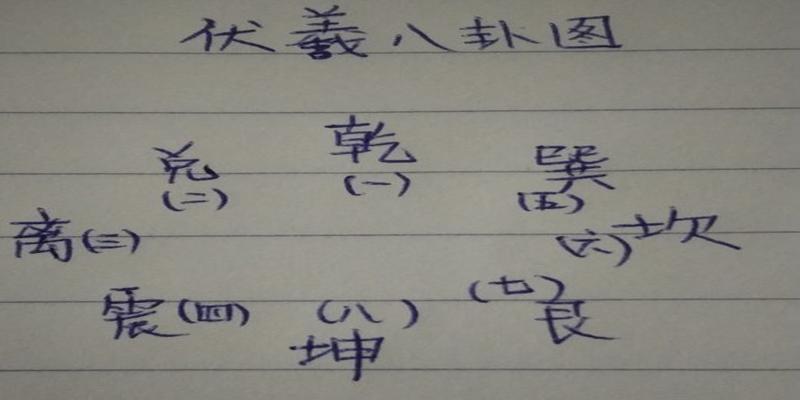 伏羲八卦图
兑 乾 巽
(二) (一) (五)
离(三) (六)坎
震(四) (八) (七)艮
坤